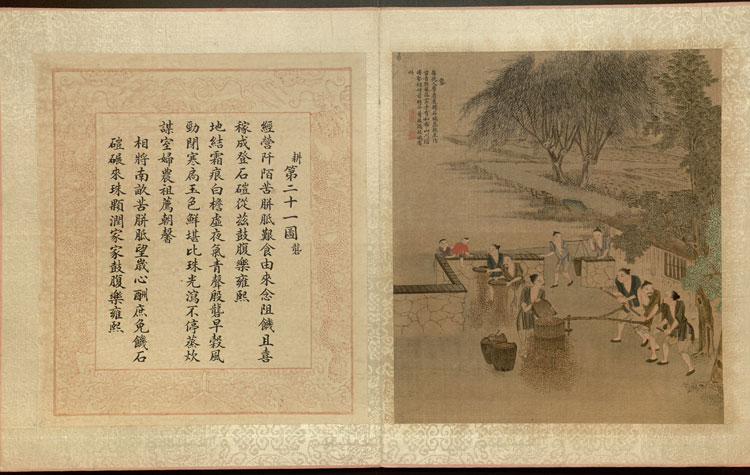 耕第二十一圖 礱
經營阡陌苦胼胝艱食由來念阻饑且喜
稼成登石磑從茲鼓腹樂雍熙
地結霜痕白檐虛夜氣青聲殷礱早穀風
勁閉寒扃玉色鮮堪比珠光瀉不停蒸炊
謀室婦農祖薦朝馨
相將南畝苦胼胝望歲心酬庶免饑石
磑碾來珠顆潤家家鼓腹樂雍熙
礱